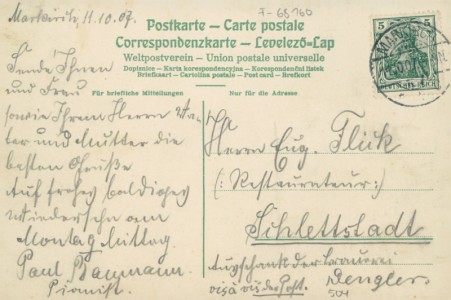 Markirch, 11.10.07.
F-68160
Postkarte – Carte postale
Correspondenzkarte – Levelező-Lap
Weltpostverein – Union postale universelle
Dopisnice – Karta korespondencyjna – Korespondenční lístek
Briefkaart – Cartolina postale – Post card – Brefkort
Für briefliche Mitteilungen
Nur für die Adresse
5 5
DEUTSCHES REICH
Sende Ihnen
und Frau
sowie Ihrem Herrn Va-
ter und Mutter die
besten Grüße
Auf frohes baldiges
Wiedersehn am
Montag Mittag.
Paul Baumann
Pianist.
Herrn Eug. Flick
(: Restaurateur :)
Schlettstadt
Ausschank der Brauerei
Dengler.
vis à vis der Post.
504